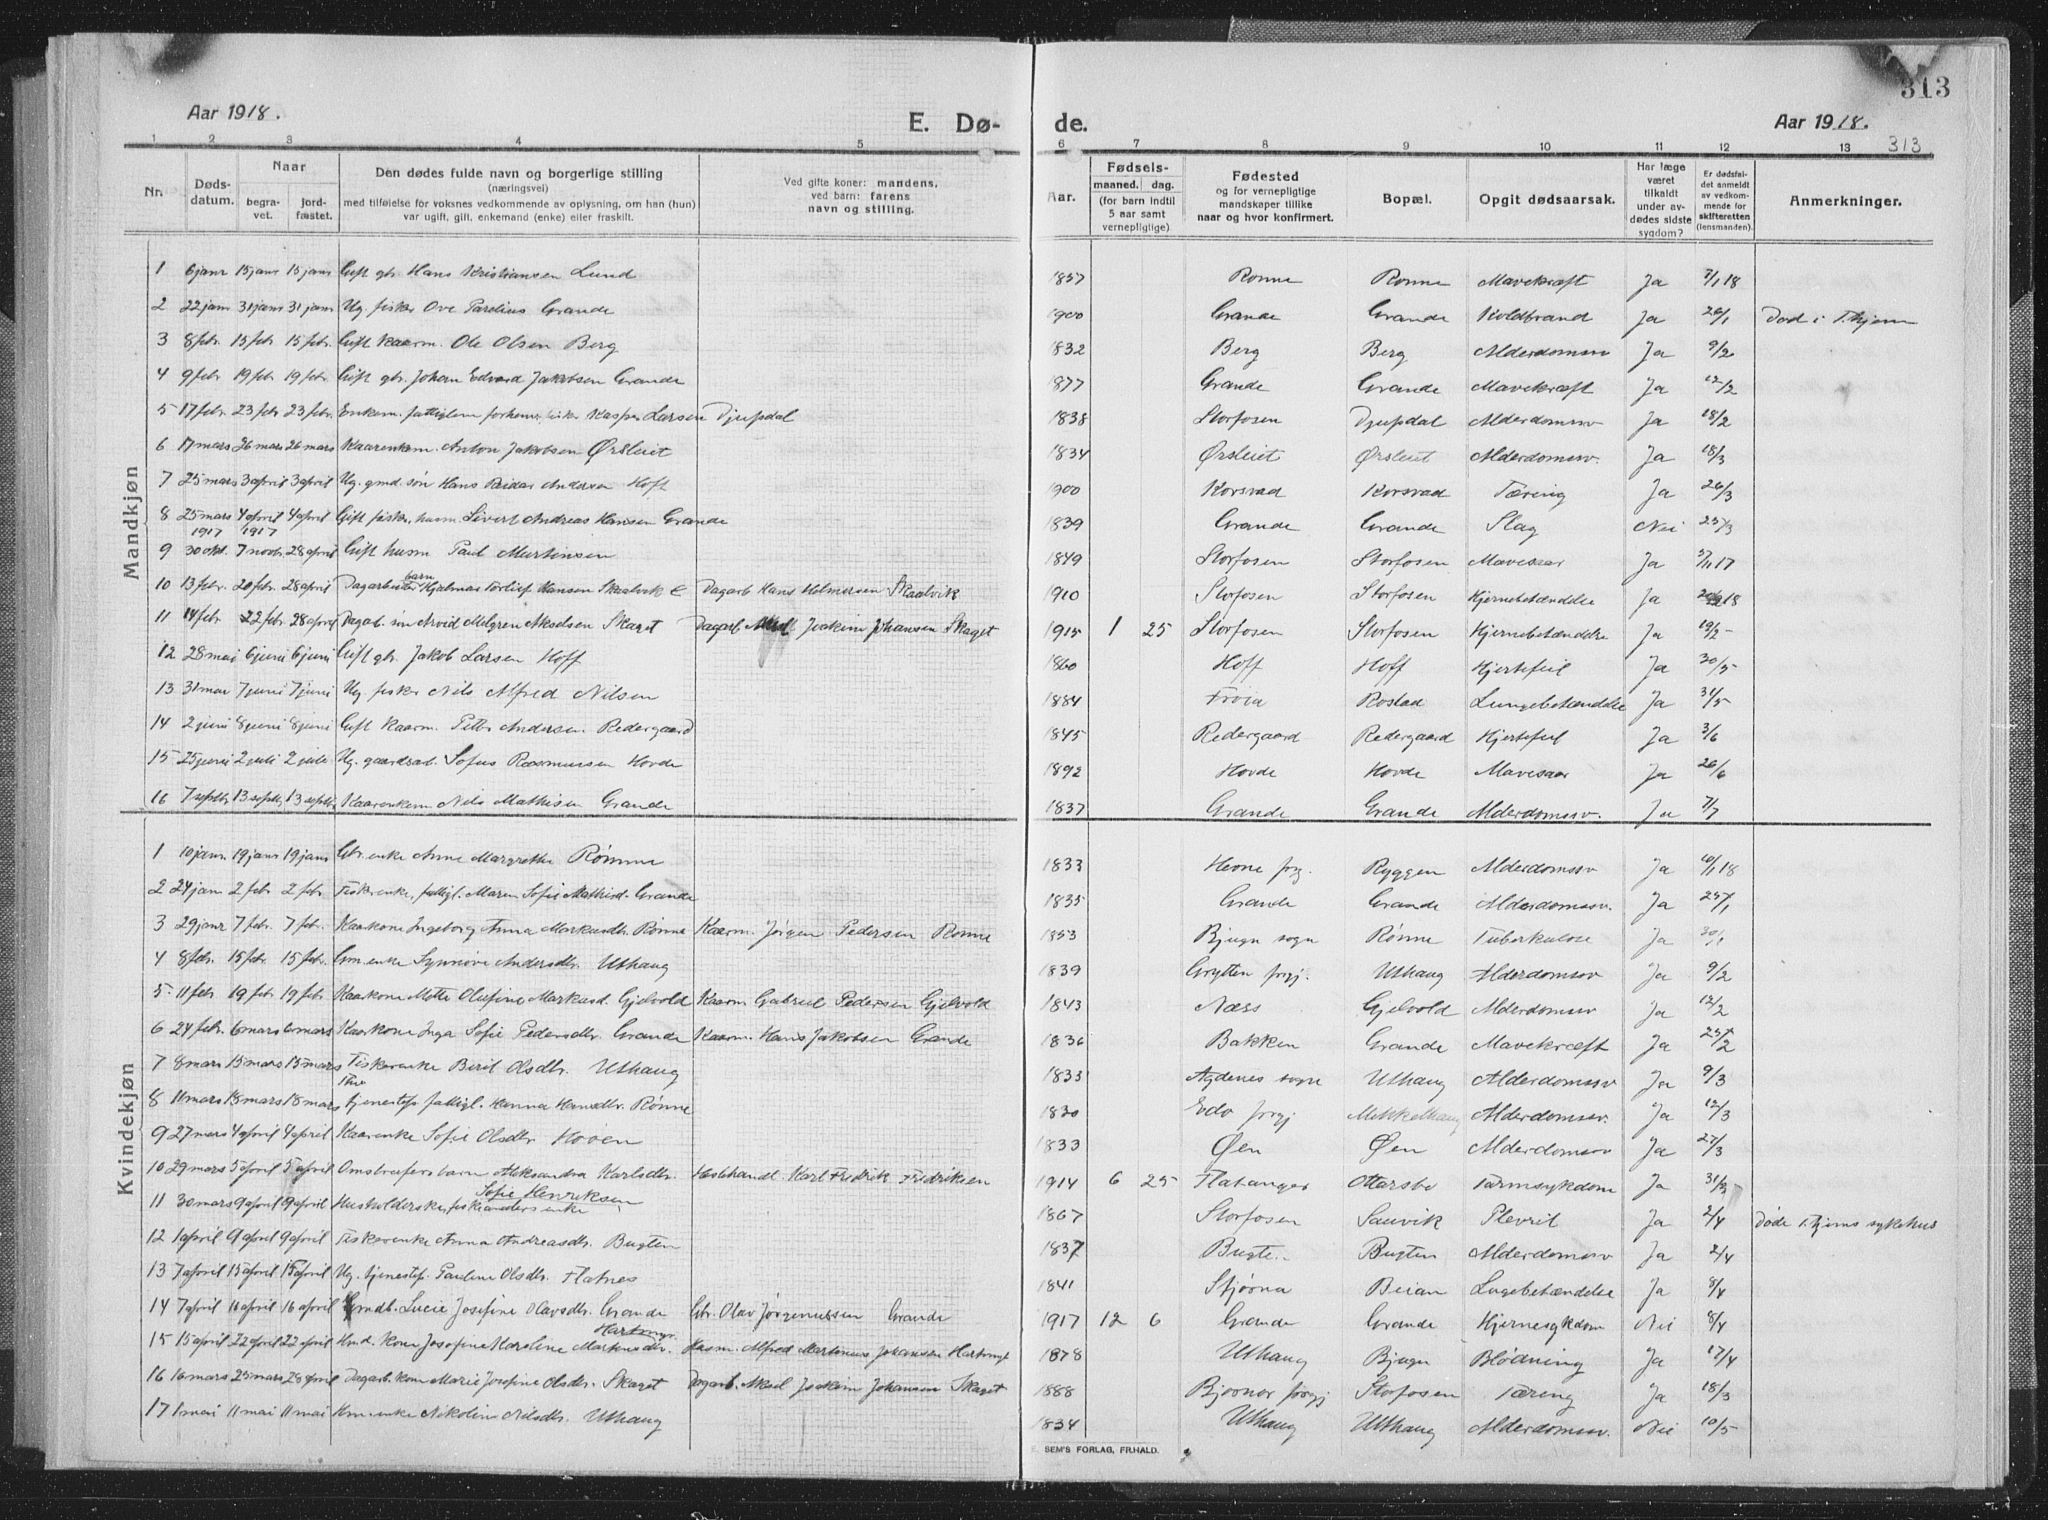 Aar 1918. E. Dø- de. Aar 1918. 313
313
1 2 3 4 5 6 7 8 9 10 11 12 13
Nr. Døds-datum. Naar begra-vet. jord-fæstet. Den dødes fulde navn og borgerlige stilling (næringsvei) med tilføielse for voksnes vedkommende av oplysning, om han (hun) var ugift, gift, enkemand (enke) eller fraskilt. Ved gifte koner: mandens, ved barn: farens navn og stilling. Aar. Fødsels- maaned. dag. (for barn indtil 5 aar samt vernepligtige) Fødested og for vernepligtige mandskaper tillike naar og hvor konfirmert. Bopæl. Opgit dødsaarsak. Har læge været tilkaldt under av-dødes sidste sygdom? Er dødsfal-det anmeldt av vedkom-mende for skifteretten (lensmanden). Anmerkninger.
Mandkjøn
1 6 janr 15 janr 15 janr Gift gbr. Hans Kristiansen Lund 1857 Rønne Rønne Mavekræft Ja 7/1 18
2 22 jan 31 janr 31 janr Ug. fisker Ove Parelius Grande 1900 Grande Grande Koldbrand Ja 26/1 Død i T.hjem
3 8 febr. 15 febr 15 febr. Gift kaarm. Ole Olsen Berg 1832 Berg Berg Alderdomssv Ja 9/2
4 9 febr 19 febr 19 febr. Gift gbr. Johan Edvard Jakobsen Grande 1877 Grande Grande Mavekræft Ja 12/2
5 17 febr. 23 febr 23 febr. Enkem. fattiglem forhenv. fisker Kasper Larsen Djupdal 1838 Storfosen Djupdal Alderdomssv Ja 18/2
6 17 mars 26 mars 26 mars Kaarenkem. Anton Jakobsen Ørsleiet 1834 Ørsleiet Ørsleiet Alderdomssv. Ja 18/3
7 25 mars 3 april 3 april Ug. gmd. søn Hans Reidar Andersen Hoft 1900 Korsvad Korsvad Tæring Ja 26/3
8 25 mars 4 april 4 april Gift fisker husm. Sivert Andreas Hansen Grande 1839 Grande Grande Slag Nei 25/3
1917 1917
9 30 okt. 7 novbr. 28 april Gift husm Paul Martinsen 1849 Storfosen Storfosen Mavesaar Ja 5/11 17
10 13 febr. 20 febr. 28 april Dagarbeider barn Hjalmar Torleif Hansen Skaalvik Dagarb Hans Helmersen Skaalvik 1910 Storfosen Storfosen Hjernebetændelse Ja 18
11 14 febr 22 febr. 28 april Dagarb. søn Arvid Melgren Akselsen Skaget Dagarb. Joakim Johansen Skaget 1915 1 25 Storfosen Storfosen Hjernebetændelse Ja 19/2
12 28 mai 6 juni 6 juni Gift gbr. Jakob Larsen Hoff 1860 Hoff Hoff Hjertefeil Ja 30/5
13 31 mai 7 juni 7 juni Ug. fisker Nils Alfred Nilsen 1884 Frøia Rostad Lungebetændelse Ja 31/5
14 2 juni 8 juni 8 juni Gift kaarm. Petter Andersen Redergaard 1845 Redergaard Redergaard Hjertefeil Ja 3/6
15 25 juni 2 juli 2 juli Ug. gaardsarb. Sofus Rasmussen Hovde 1892 Hovde Hovde Mavesaar Ja 26/6
16 7 septbr 13 septbr, 13 septbr. Kaarenkem Nils Mathisen Grande 1837 Grande Grande Alderdomssv. Ja 7/7
Kvindekjøn
1 10 janr. 19 janr 19 janr Gbr. enke Anne Margrethe Rømme 1833 Hevne prg. Ryggen Alderdomssv Ja 10/1 18
2 24 jan 2 febr 2 febr. Fiskerenke, fattigl. Maren Sofie Mathisd. Grande 1835 Grande Grande Alderdomssv. Ja 25/1
3 29 janr 7 febr 7 febr. Kaarkone Ingeborg Anna Markusdtr. Rønne Kaarm. Jørgen Pedersen Rønne 1853 Bjugn sogn Rønne Tuberkulose Ja 30/1
4 8 febr. 15 febr. 15 febr. Gm. enke Synnøve Andersdtr. Uthaug 1839 Grytten prgj. Uthaug Alderdomssv Ja 9/2
5 11 febr 19 febr 19 febr. Kaarkone Mette Olufine Markusd. Gjelvold Kaarm Gabriel Pedersen Gjelvold 1843 Næss Gjelvold Alderdomssv Ja 12/2
6 24 febr. 6 mars 6 mars Kaarkone Inga Sofie Pedersdtr. Grande Kaarm. Hans Jakobsen Grande 1836 Bakken Grande Mavekræft Ja 25/2
7 8 mars 15 mars 15 mars Fiskerenke Beret Olsdtr. Uthaug 1833 Agdenes sogn Uthaug Alderdomssv Ja 9/3
8 11 mars 18 mars 18 mars tjenestep. fattigl. Hanna Hansdtr. Rønne 1830 Edø prgj Mikkelhaug Alderdomssv. Ja 12/3
9 27 mars 4 april 4 april Kaarenke Sofie Olsdtr. Hoven 1833 Øen Øen Alderdomssv Ja 27/3
10 29 mars 5 april 5 april Omstreifers barn Aleksandra Karlsdtr. Hestehandl. Karl Fredrik Fredriksen 1914 6 25 Flatanger Ottersbo Tarmsykdom Ja 31/3
11 30 mars 9 april 9 april Husholderske, fiskehandlers enke Sofie Henriksen 1867 Storfosen Sauvik Plevrit Ja 2/4 Døde T.hjems sykehus
12 1 april 9 april 9 april Fiskerenke Anna Andreasdtr. Bugten 1837 Bugten Bugten Alderdomssv Ja 2/4
13 7 april 15 april 15 april Ug. tjenestep. Pauline Olsdtr. Flatnes 1841 Stjørna Beian Lugebetændelse Ja 8/4
14 7 april 16 april 16 april Gmdb. Lucie Josefine Olavsdtr. Grande Gbr. Olav Jørgenussen Grande 1917 12 6 Grande Grande Hjernesykdom Nei 8/4
15 15 april 22 april 22 april Hmd. kone Josefine Karoline Martinsdtr. Hartmyr. Husm. Alfred Martinus Johansen Hartmyr 1878 Uthaug Bjugn Blødning Ja 17/4
16 16 mars 25 mars 28 april Dagarb. kone Marie Josefine Olsdtr. Skaget Dagarb. Aksel Joakim Johansen Skaget 1888 Bjørnør prgj Storfosen Tæring Ja 18/3
17 1 mai 11 mai 11 mai Hm. enke Nikoline Nilsdtr. Uthaug 1834 Uthaug Uthaug Alderdomssv. Nei 10/5
SEM'S FORLAG, FR.HALD.